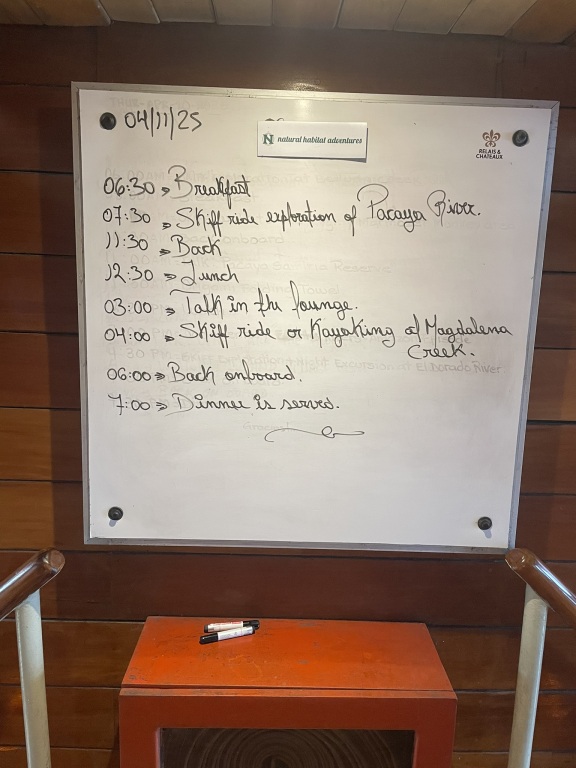 04/11/25
natural habitat adventures
RELAIS &
CHATEAUX
06:30 » Breakfast
07:30 » Skiff ride exploration of Pacaya River.
11:30 » Back
12:30 » Lunch
03:00 » Talk in the lounge.
04:00 » Skiff ride or Kayaking of Magdalena
Creek.
06:00 » Back onboard.
7:00 » Dinner is served.